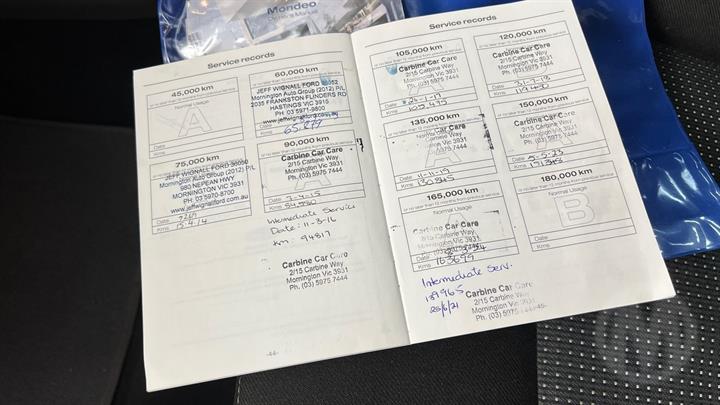 Mondeo
Owner's Manual
Service records
45,000 km
or no later than 12 months from previous service
Normal Usage
A
Date
Kms
60,000 km
JEFF WIGNALL FORD
Mornington Auto Group (2012) P/L
2035 FRANKSTON FLINDERS RD
HASTINGS VIC 3915
PH: 03 5971-9800
www.jeffwignallford.com.au
Date
Kms 65,879
75,000 km
or no later than 12 months from previous service
JEFF WIGNALL FORD
Mornington Auto Group (2012) P/L
980 NEPEAN HWY
MORNINGTON VIC 3931
PH: 03 5970-8700
www.jeffwignallford.com.au
Date
Kms 15.4.14
90,000 km
or no later than 12 months from previous service
Carbine Car Care
2/15 Carbine Way
Mornington Vic 3931
Ph. (03) 5975 7444
Date 7-4-15
Kms
Intermediate Service
Date: 11-3-16
Km. 94817
Carbine Car Care
2/15 Carbine Way
Mornington Vic 3931
Ph. (03) 5975 7444
-44-
Service records
105,000 km
or no later than 12 months from previous service
Carbine Car Care
2/15 Carbine Way
Mornington Vic 3931
Ph. (03) 5975 7444
Date
Kms 105,495
120,000 km
or no later than 12 months from previous service
Carbine Car Care
2/15 Carbine Way
Mornington Vic 3931
Ph. (03) 5975 7444
Date
Kms
135,000 km
or no later than 12 months from previous service
Date 11-11-19
Kms 130,845
150,000 km
or no later than 12 months from previous service
Carbine Car Care
2/15 Carbine Way
Mornington Vic 3931
Ph. (03) 5975 7444
Date 5-5-23
Kms
165,000 km
or no later than 12 months from previous service
Normal Usage
Carbine Car Care
2/15 Carbine Way
Mornington Vic 3931
Ph. (03) 5975 7444
Date
Kms 163699
180,000 km
or no later than 12 months from previous service
Normal Usage
B
Date
Kms
Intermediate Serv.
139965
25/6/21
Carbine Car Care
2/15 Carbine Way
Mornington Vic 3931
Ph. (03) 5975
-45-